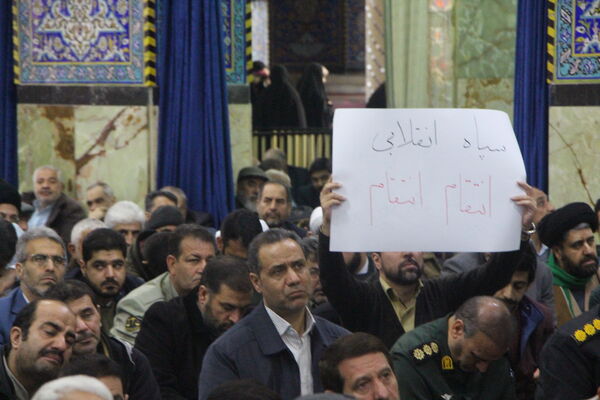 سپاه انقلابی
انتقام انتقام